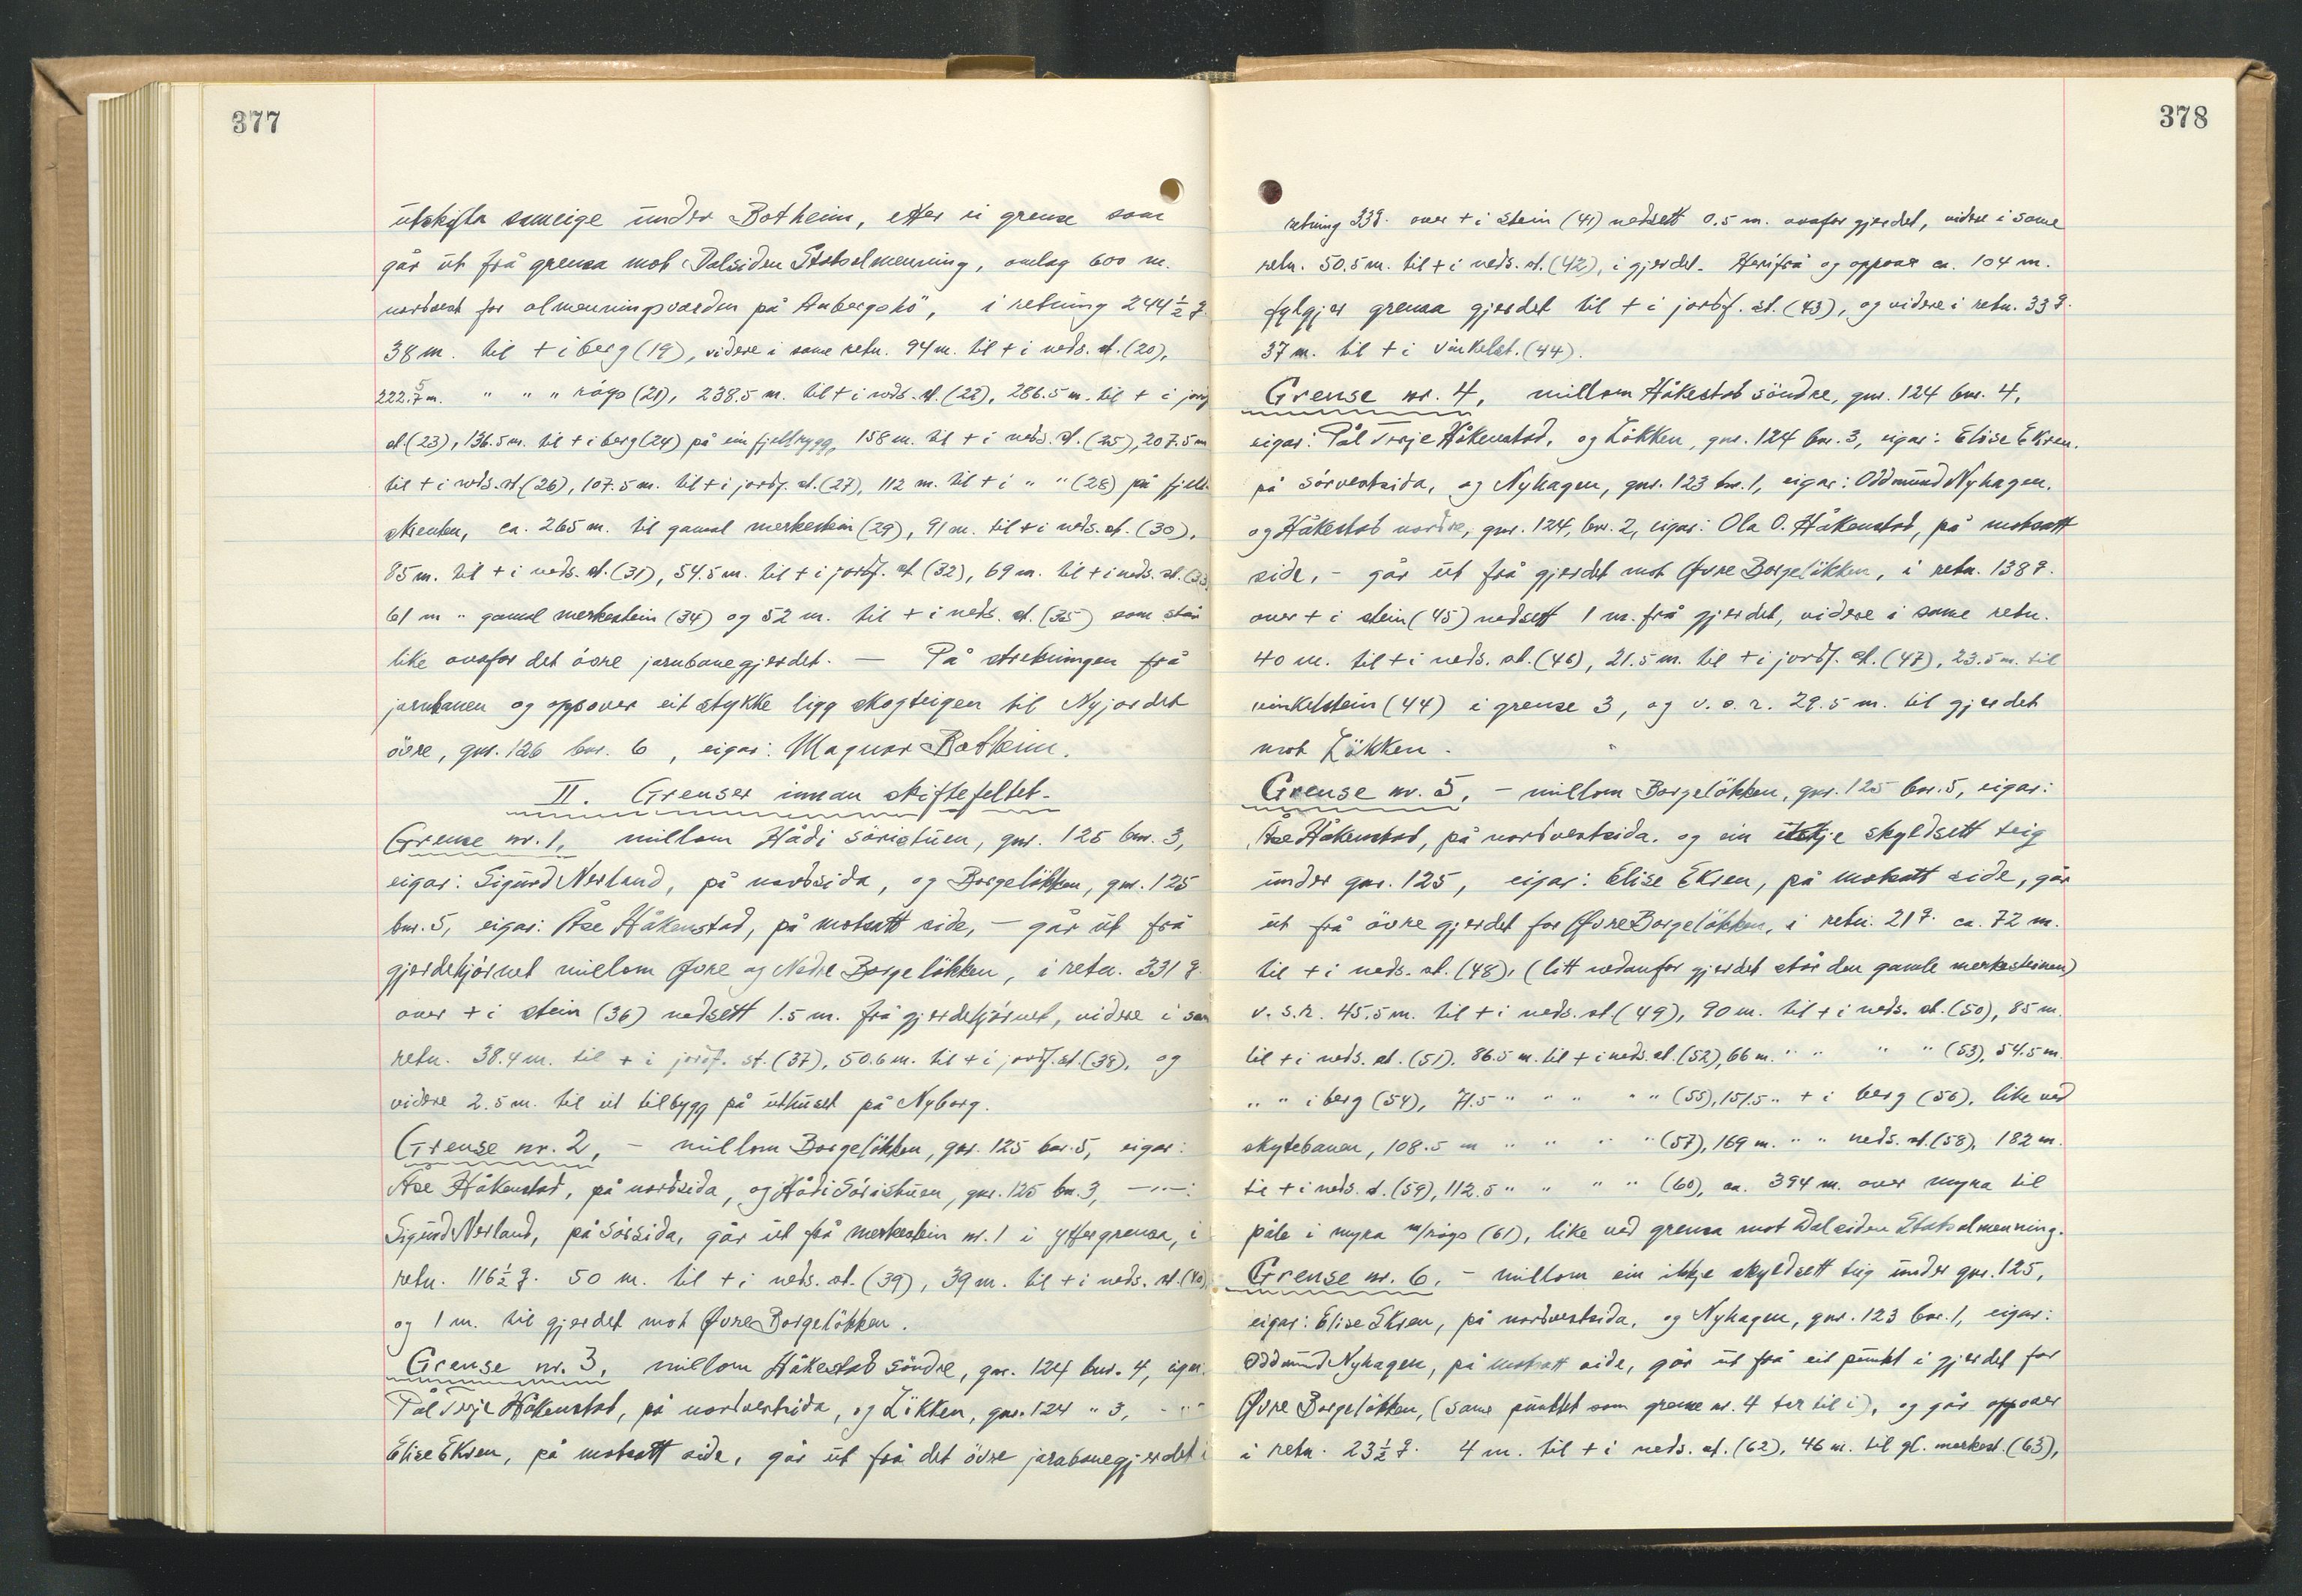 377
utskifta sameige under Botheim, etter ei grense som
går ut frå grensa mot Dalsiden Statsalmenning, omlag 600 m.
nordvest for almenningsvarden på Anbergshö, i retning 244½ g.
38 m. til + i berg (19), videre i same retn. 94 m. til + i neds. st. (20),
222.5 m. " " " röys (21), 238.5 m. til + i neds. st. (22), 286.5 m. til + i jordf.
st. (23), 136.5 m. til + i berg (24) på ein fjellrygg, 158 m. til + i neds. st. (25), 207.5 m
til + i neds. st. (26), 107.5 m. til + i jordf. st. (27), 112 m. til + i " " (28) på fjell-
skrenten, ca. 265 m. til gamal merkestein (29), 91 m. til + i neds. st. (30),
85 m. til + i neds. st. (31), 54.5 m. til + i jordf. st. (32), 69 m. til + i neds. st. (33)
61 m " gamal merkestein (34) og 52 m. til + i neds. st. (35) som står
like ovafor det övre jarnbanegjerdet. — På strekningen frå
jarnbanen og oppover eit stykke ligg skogteigen til Nyjordet
övre, gnr. 126 bnr. 6, eigar: Magnar Botheim.
II. Grenser innan skiftefeltet.
Grense nr. 1, millom Hådi söristuen, gnr. 125 bnr. 3,
eigar: Sigurd Nerland, på nordsida, og Borgelökken, gnr. 125
bnr. 5, eigar: Åse Håkenstad, på motsatt side, – går ut frå
gjerdehjörnet millom Øvre og Nedre Borgelökken, i retn. 331 g.
over + i stein (36) nedsett 1.5 m. frå gjerdehjörnet, videre i sam
retn. 38.4 m. til + i jordf. st. (37), 50.6 m. til + i jordf. st. (38), og
videre 2.5 m. til eit tilbygg på uthuset på Nyborg.
Grense nr. 2, – millom Borgelökken, gnr. 125 bnr. 5, eigar:
Åse Håkenstad, på nordsida, og Hådi Söristuen, gnr. 125 bnr. 3, —"—:
Sigurd Nerland, på Sörsida, går ut frå merkestein nr. 1 i yttergrensa, i
retn. 116½ g. 50 m. til + i neds. st. (39), 39 m. til + i neds. st. (40),
og 1 m. til gjerdet mot Øvre Borgelökken.
Grense nr. 3, millom Håkestad söndre, gnr. 124 bnr. 4, eigar
Pål Terje Håkenstad, på nordvestsida, og Lökken, gnr. 124 " 3, - " -
Elise Ekren, på motsatt side, går ut frå det övre jarnbanegjerdet i
378
retning 33 g. over + i stein (41) nedsett 0.5 m. ovafor gjerdet, videre i same
retn. 50.5 m. til + i neds. st. (42), i gjerdet. Herifrå og oppover ca. 104 m.
fylgjer grensa gjerdet til + i jordf. st. (43), og videre i retn. 33 g.
37 m. til + i vinkelst. (44).
Grense nr. 4, millom Håkestad söndre, gnr. 124 bnr. 4,
eigar: Pål Terje Håkenstad, og Lökken, gnr. 124 bnr. 3, eigar: Elise Ekren.
på sörvestsida, og Nyhagen, gnr. 123 bnr. 1, eigar: Oddmund Nyhagen.
og Håkestad nordre, gnr. 124, bnr. 2, eigar: Ola O. Håkenstad, på motsatt
side, – går ut frå gjerdet mot Øvre Borgelökken, i retn. 138 g.
over + i stein (45) nedsett 1 m. frå gjerdet, videre i same retn.
40 m. til + i neds. st. (46), 21.5 m. til + i jordf. st. (47), 23.5 m. til
vinkelstein (44) i grense 3, og v. s. r. 29.5 m. til gjerdet
mot Lökken.
Grense nr. 5, – millom Borgelökken, gnr. 125 bnr. 5, eigar:
Åse Håkenstad, på nordvestsida, og ein ikkje skyldsett teig
under gnr. 125, eigar: Elise Ekren, på motsatt side, går
ut frå övre gjerdet for Øvre Borgelökken, i retn. 21 g. ca. 72 m.
til + i neds. st. (48), (litt nedanfor gjerdet står den gamle merkesteinen)
v. s. r. 45.5 m. til + i neds. st. (49), 90 m. til + i neds. st. (50), 85 m.
til + i neds. st. (51). 86.5 m. til + i neds. st. (52), 66 m. " " " " (53), 54.5 m.
" " i berg (54), 71.5 " " " " " (55), 151.5 " + i berg (56), like ved
skytebanen, 108.5 m " " " " (57), 169 m. " " neds. st. (58), 182 m.
til + i neds. st. (59), 112.5 " " " " (60), ca. 394 m. over myra til
påle i myra m/röys (61), like ved grensa mot Dalsiden Statsalmenning.
Grense nr. 6, – millom ein ikkje skyldsett teig under gnr. 125,
eigar: Elise Ekren, på nordvestsida, og Nyhagen, gnr. 123 bnr. 1, eigar:
Oddmund Nyhagen, på motsatt side, går ut frå eit punkt i gjerdet for
Øvre Borgelökken, (same punktet som grense nr. 4 tar til i), og går oppover
i retn. 23½ g. 4 m. til + i neds. st. (62), 46 m. til gl. merkest. (63),